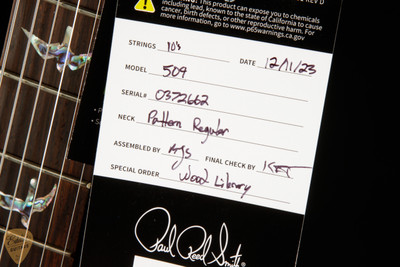 WARNING: This product can expose you to chemicals
including lead, known to the state of California to cause
cancer, birth defects, or other reproductive harm. For
more information, go to www.p65warnings.ca.gov
STRINGS 10's DATE 12/11/23
MODEL 509
SERIAL# 0372662
NECK Pattern Regular
ASSEMBLED BY AJS FINAL CHECK BY
SPECIAL ORDER Wood Library
Paul Reed Smith